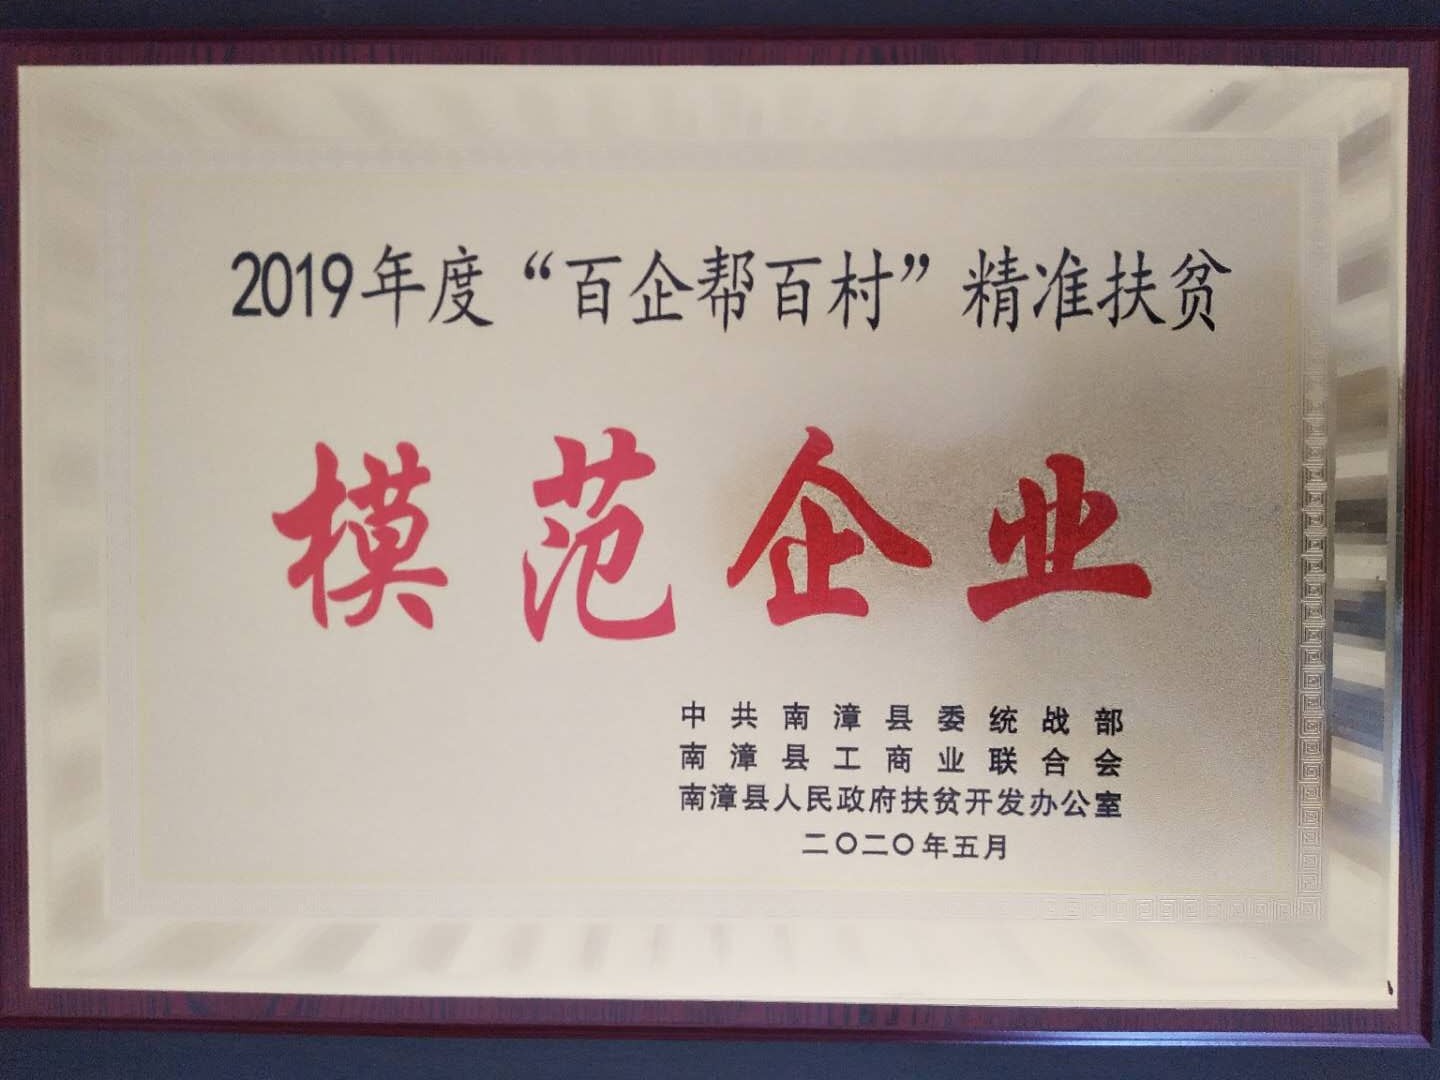 2019年度“百企帮百村”精准扶贫
模范企业
中共南漳县委统战部
南漳县工商业联合会
南漳县人民政府扶贫开发办公室
二〇二〇年五月